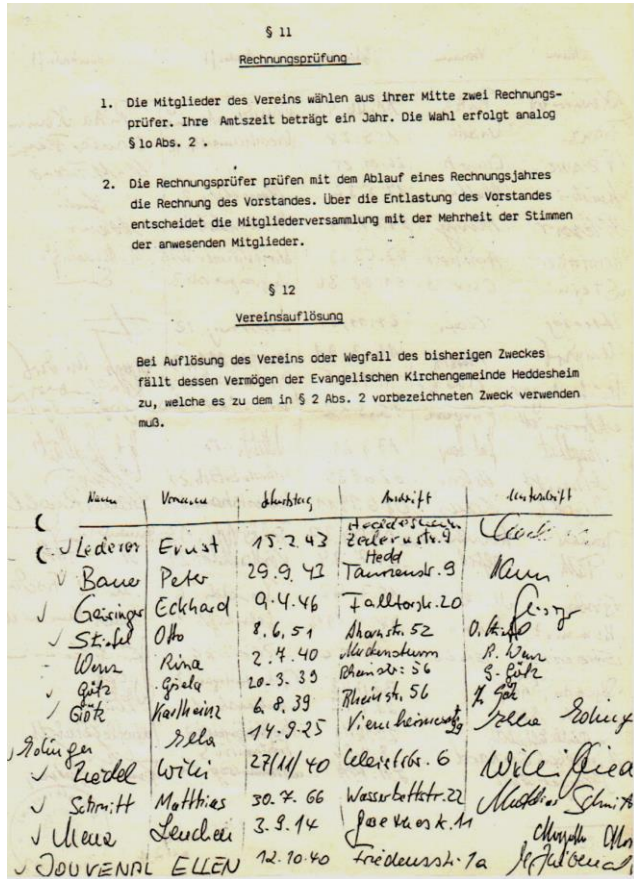 § 11
Rechnungsprüfung
1. Die Mitglieder des Vereins wählen aus ihrer Mitte zwei Rechnungs-
prüfer. Ihre Amtszeit beträgt ein Jahr. Die Wahl erfolgt analog
§ 1o Abs. 2 .
2. Die Rechnungsprüfer prüfen mit dem Ablauf eines Rechnungsjahres
die Rechnung des Vorstandes. Über die Entlastung des Vorstandes
entscheidet die Mitgliederversammlung mit der Mehrheit der Stimmen
der anwesenden Mitglieder.
§ 12
Vereinsauflösung
Bei Auflösung des Vereins oder Wegfall des bisherigen Zweckes
fällt dessen Vermögen der Evangelischen Kirchengemeinde Heddesheim
zu, welche es zu dem in § 2 Abs. 2 vorbezeichneten Zweck verwenden
muß.
Name Vorname Geburtstag Anschrift Unterschrift
Heddesheim
Lederer Ernst 15.2.43
Hedd
Bauer Peter 29.9.43 Taunusstr. 9
Geisinger Eckhard 9.4.46 Falltorstr. 20
Stiefel Otto 8.6.51 Ahornstr. 52 O. Stiefel
Wenz Rina 2.7.40 R. Wenz
Götz Gisela 20.3.39 Rheinstr. 56 G. Götz
Götz Karlheinz 6.8.39 Rheinstr. 56 Götz
14.9.25 Viernheimerstr. 29
Edinger
Willi 27/11/40 6 Willi
Schmitt Matthias 30.7.66 Wasserbettstr. 22 Matthias Schmitt
Lenchen 3.9.14 Goethestr. 11
JOUVENAL ELLEN 12.10.40 Friedensstr. 1a